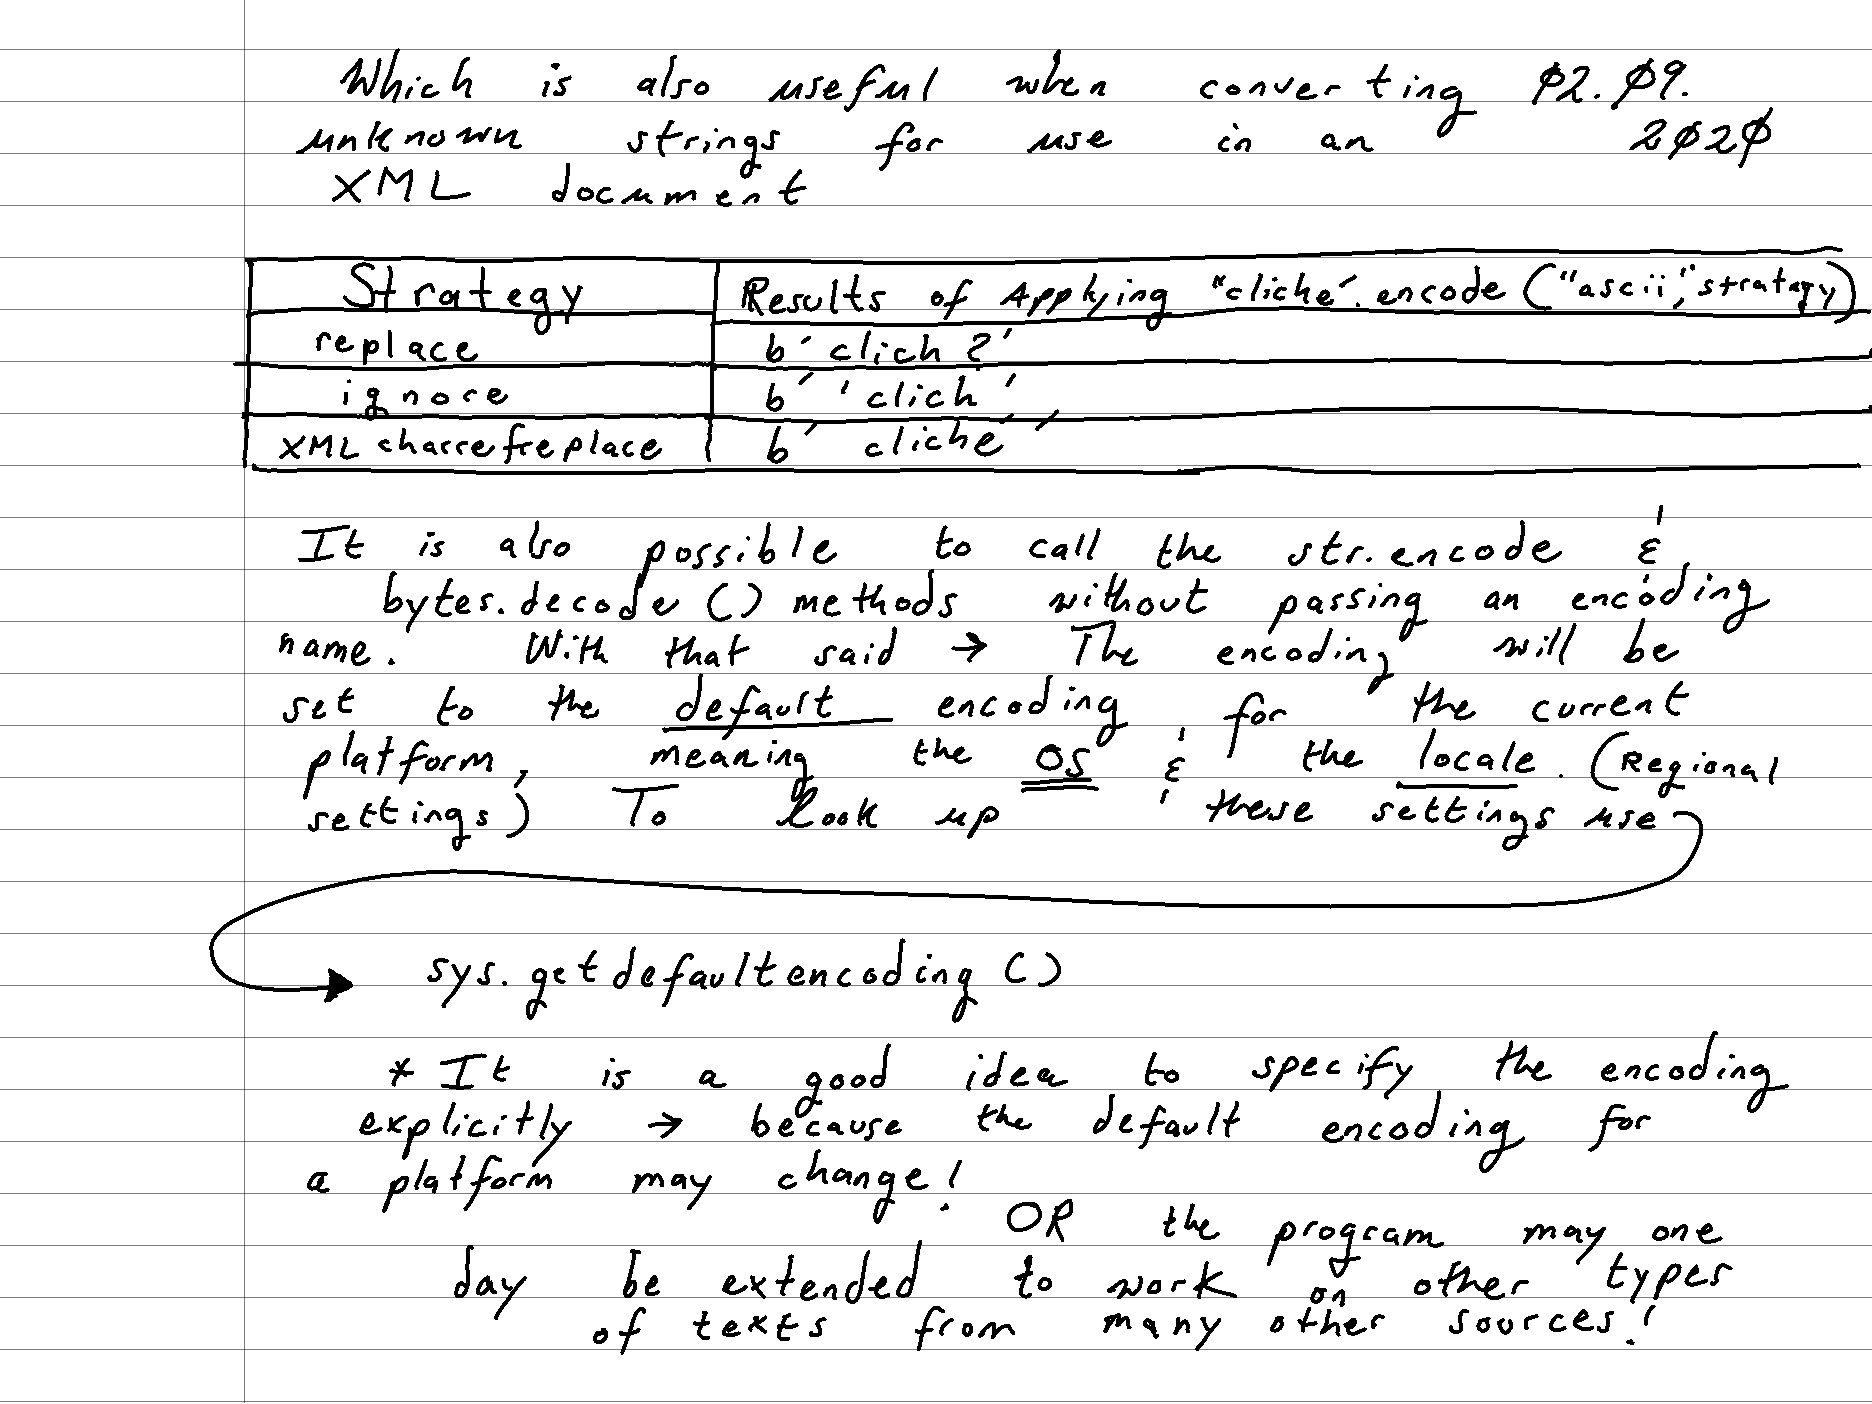 Which is also useful when converting 02.09.
unknown strings for use in an 2020
XML document
Strategy Results of Applying "cliche".encode("ascii", stratagy)
replace b'clich?'
ignore b' 'clich'
XML charrefreplace b' cliche'
It is also possible to call the str.encode &
bytes.decode () methods without passing an encoding
name. With that said → The encoding will be
set to the default encoding for the current
platform, meaning the OS & the locale. (Regional
settings) To look up these settings use
sys.getdefaultencoding ()
* It is a good idea to specify the encoding
explicitly → because the default encoding for
a platform may change!
OR the program may one
day be extended to work on other types
of texts from many other sources!